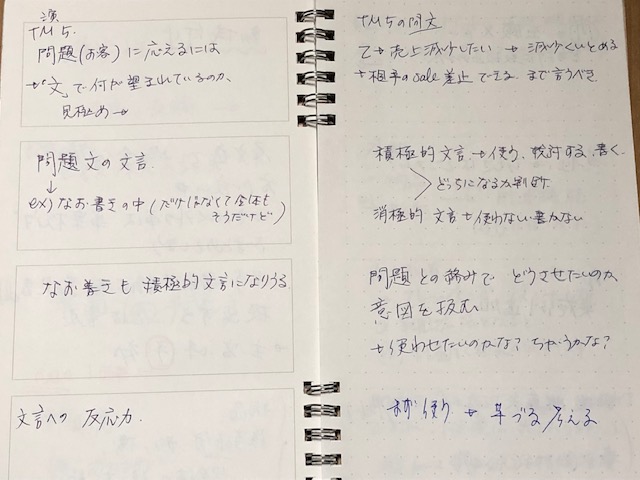 TM 5.
問題(お客)に応えるには
"文"で何が望まれているのか、
見極め→
問題文の文言
↓
ex) なお書きの中(だけじゃなくて全体も
そうだけど)
なお書きも 積極的文言になりうる
文言への 反応力.
TM5の問文
乙→売上減少したい → 減少くいとめる
→相手のsale差止 できる まで言うべき
積極的文言→使う、検討する、書く.
どっちになるか判断
消極的 文言→使わない書かない
問題との絡みで どうさせたいのか
意図を汲む
→使わせたいのかな? ちゃうかな?
まず使う → 芋づる 考える